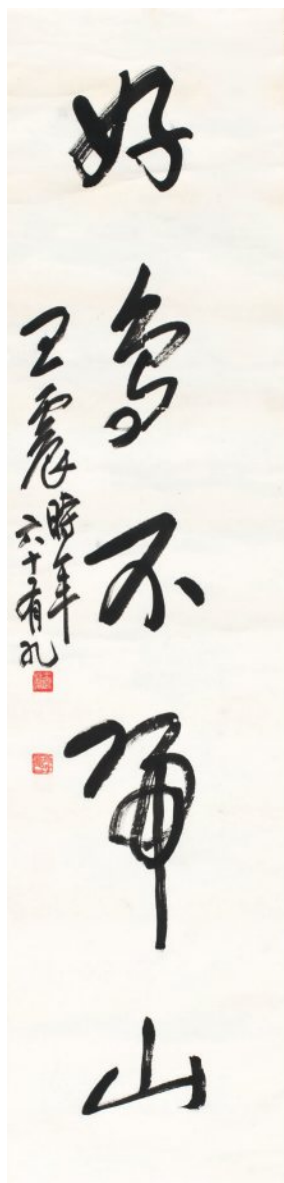 好鳥不歸山
王震時年
六十有九